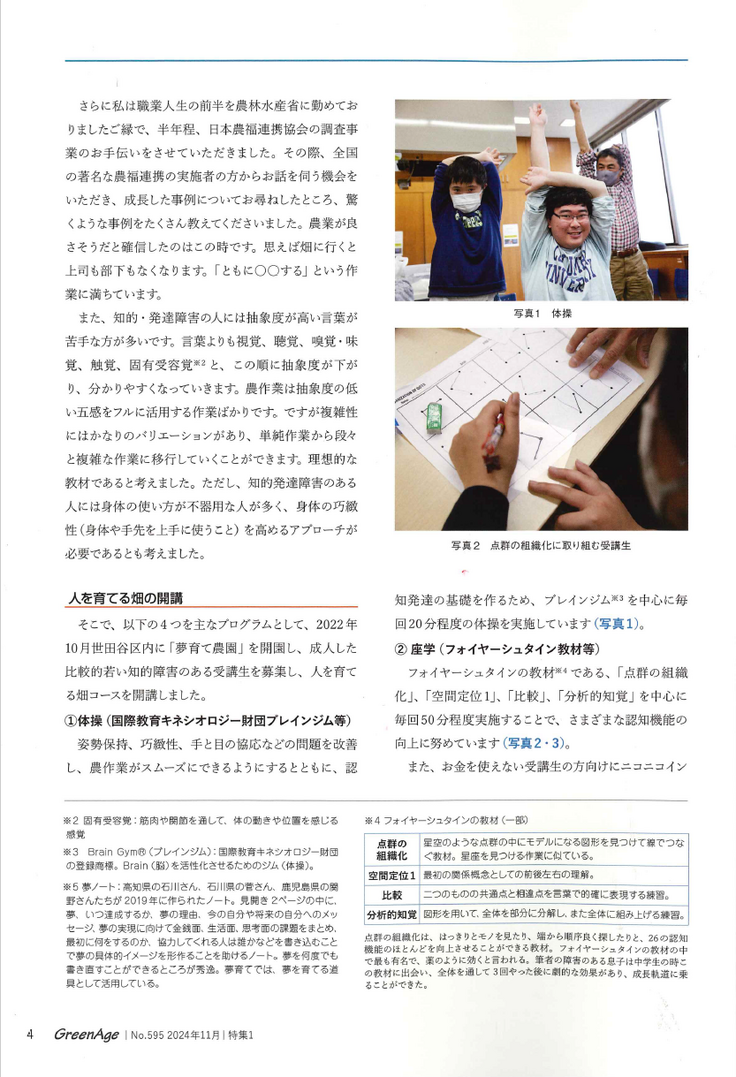 さらに私は職業人生の前半を農林水産省に勤めてお
りましたご縁で、半年程、日本農福連携協会の調査事
業のお手伝いをさせていただきました。その際、全国
の著名な農福連携の実施者の方からお話を伺う機会を
いただき、成長した事例についてお尋ねしたところ、驚
くような事例をたくさん教えてくださいました。農業が良
さそうだと確信したのはこの時です。思えば畑に行くと
上司も部下もなくなります。「ともに〇〇する」という作
業に満ちています。
また、知的・発達障害の人には抽象度が高い言葉が
苦手な方が多いです。言葉よりも視覚、聴覚、嗅覚・味
覚、触覚、固有受容覚※2と、この順に抽象度が下が
り、分かりやすくなっていきます。農作業は抽象度の低
い五感をフルに活用する作業ばかりです。ですが複雑性
にはかなりのバリエーションがあり、単純作業から段々
と複雑な作業に移行していくことができます。理想的な
教材であると考えました。ただし、知的発達障害のある
人には身体の使い方が不器用な人が多く、身体の巧緻
性（身体や手先を上手に使うこと）を高めるアプローチが
必要であるとも考えました。
写真1　体操
写真2　点群の組織化に取り組む受講生
人を育てる畑の開講
そこで、以下の4つを主なプログラムとして、2022年
10月世田谷区内に「夢育て農園」を開園し、成人した
比較的若い知的障害のある受講生を募集し、人を育て
る畑コースを開講しました。
①体操（国際教育キネシオロジー財団ブレインジム等）
姿勢保持、巧緻性、手と目の協応などの問題を改善
し、農作業がスムーズにできるようにするとともに、認
知発達の基礎を作るため、ブレインジム※3を中心に毎
回20分程度の体操を実施しています（写真1）。
② 座学（フォイヤーシュタイン教材等）
フォイヤーシュタインの教材※4である、「点群の組織
化」、「空間定位1」、「比較」、「分析的知覚」を中心に
毎回50分程度実施することで、さまざまな認知機能の
向上に努めています（写真2・3）。
また、お金を使えない受講生の方向けにニコニコイン
※2 固有受容覚：筋肉や関節を通して、体の動きや位置を感じる
感覚
※3　Brain Gym®（ブレインジム）：国際教育キネシオロジー財団
の登録商標。Brain（脳）を活性化させるためのジム（体操）。
※5 夢ノート：高知県の石川さん、石川県の菅さん、鹿児島県の関
野さんたちが2019年に作られたノート。見開き2ページの中に、
夢、いつ達成するか、夢の理由、今の自分や将来の自分へのメッ
セージ、夢の実現に向けて金銭面、生活面、思考面の課題をまとめ、
最初に何をするのか、協力してくれる人は誰かなどを書き込むこと
で夢の具体的イメージを形作ることを助けるノート。夢を何度でも
書き直すことができるところが秀逸。夢育てでは、夢を育てる道
具として活用している。
※4 フォイヤーシュタインの教材（一部）
点群の
組織化
星空のような点群の中にモデルになる図形を見つけて線でつな
ぐ教材。星座を見つける作業に似ている。
空間定位1 最初の関係概念としての前後左右の理解。
比較 二つのものの共通点と相違点を言葉で的確に表現する練習。
分析的知覚 図形を用いて、全体を部分に分解し、また全体に組み上げる練習。
点群の組織化は、はっきりとモノを見たり、端から順序良く探したりと、26の認知
機能のほとんどを向上させることができる教材。フォイヤーシュタインの教材の中
で最も有名で、薬のように効くと言われる。筆者の障害のある息子は中学生の時こ
の教材に出会い、全体を通して3回やった後に劇的な効果があり、成長軌道に乗
ることができた。
4　GreenAge | No.595 2024年11月 | 特集1